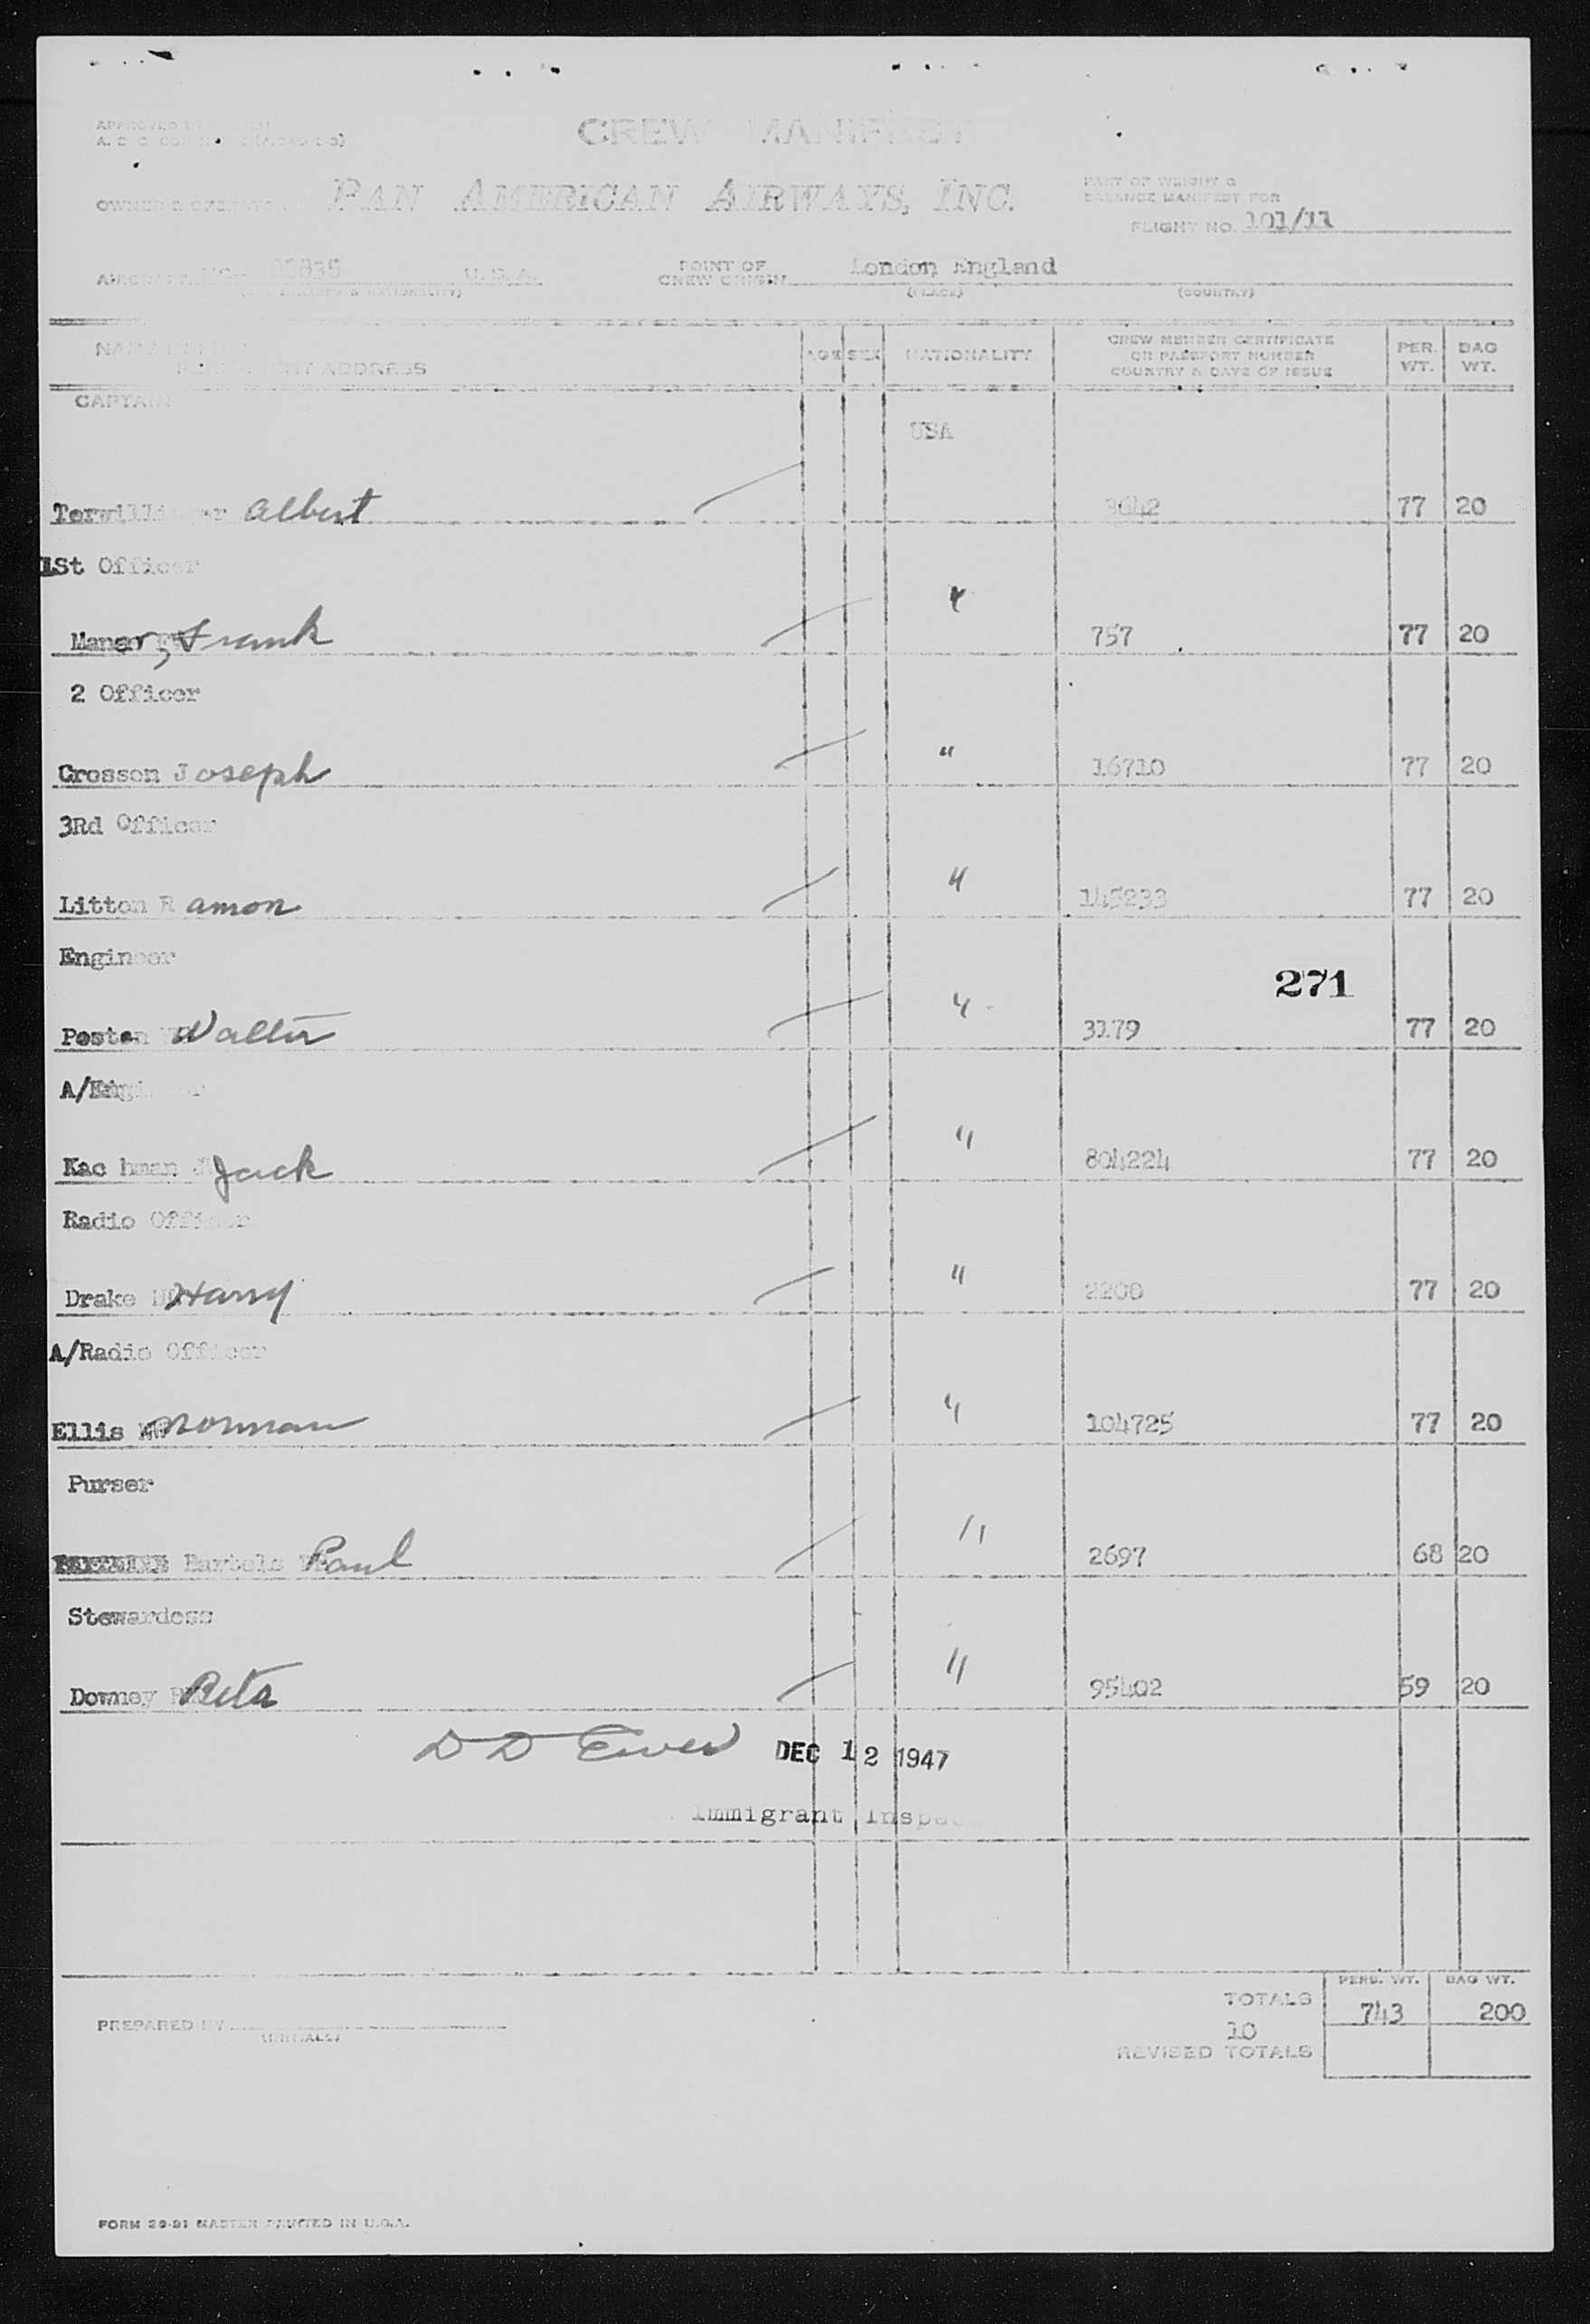 CREW MANIFEST
PAN AMERICAN AIRWAYS, INC.
PART OF WEIGHT &
BALANCE MANIFEST FOR
FLIGHT NO. 101/11
U.S.A. POINT OF CREW ORIGIN London England
(PLACE) (COUNTRY)
ADDRESS AGE SEX NATIONALITY CREW MEMBER CERTIFICATE OR PASSPORT NUMBER COUNTRY & DATE OF ISSUE PER. WT. BAG WT.
CAPTAIN
USA
Albert 3642 77 20
1St Officer
Manor, Frank 757 77 20
2 Officer
Crosson Joseph " 16710 77 20
3Rd Officer
Litton Ramon " 145233 77 20
Engineer
271
Posten Walter " 3179 77 20
A/Engineer
Kac hman Jack " 804224 77 20
Radio Officer
Drake Harry " 2200 77 20
A/Radio Officer
Ellis Norman " 104725 77 20
Purser
Bartels Paul " 2697 68 20
Stewardess
Downey Rita " 95402 59 20
D D DEC 12 1947
Immigrant
PERS. WT. BAG WT.
TOTALS 743 200
10
REVISED TOTALS
PREPARED BY
(INITIALS)
FORM 29-91 MASTER PRINTED IN U.S.A.